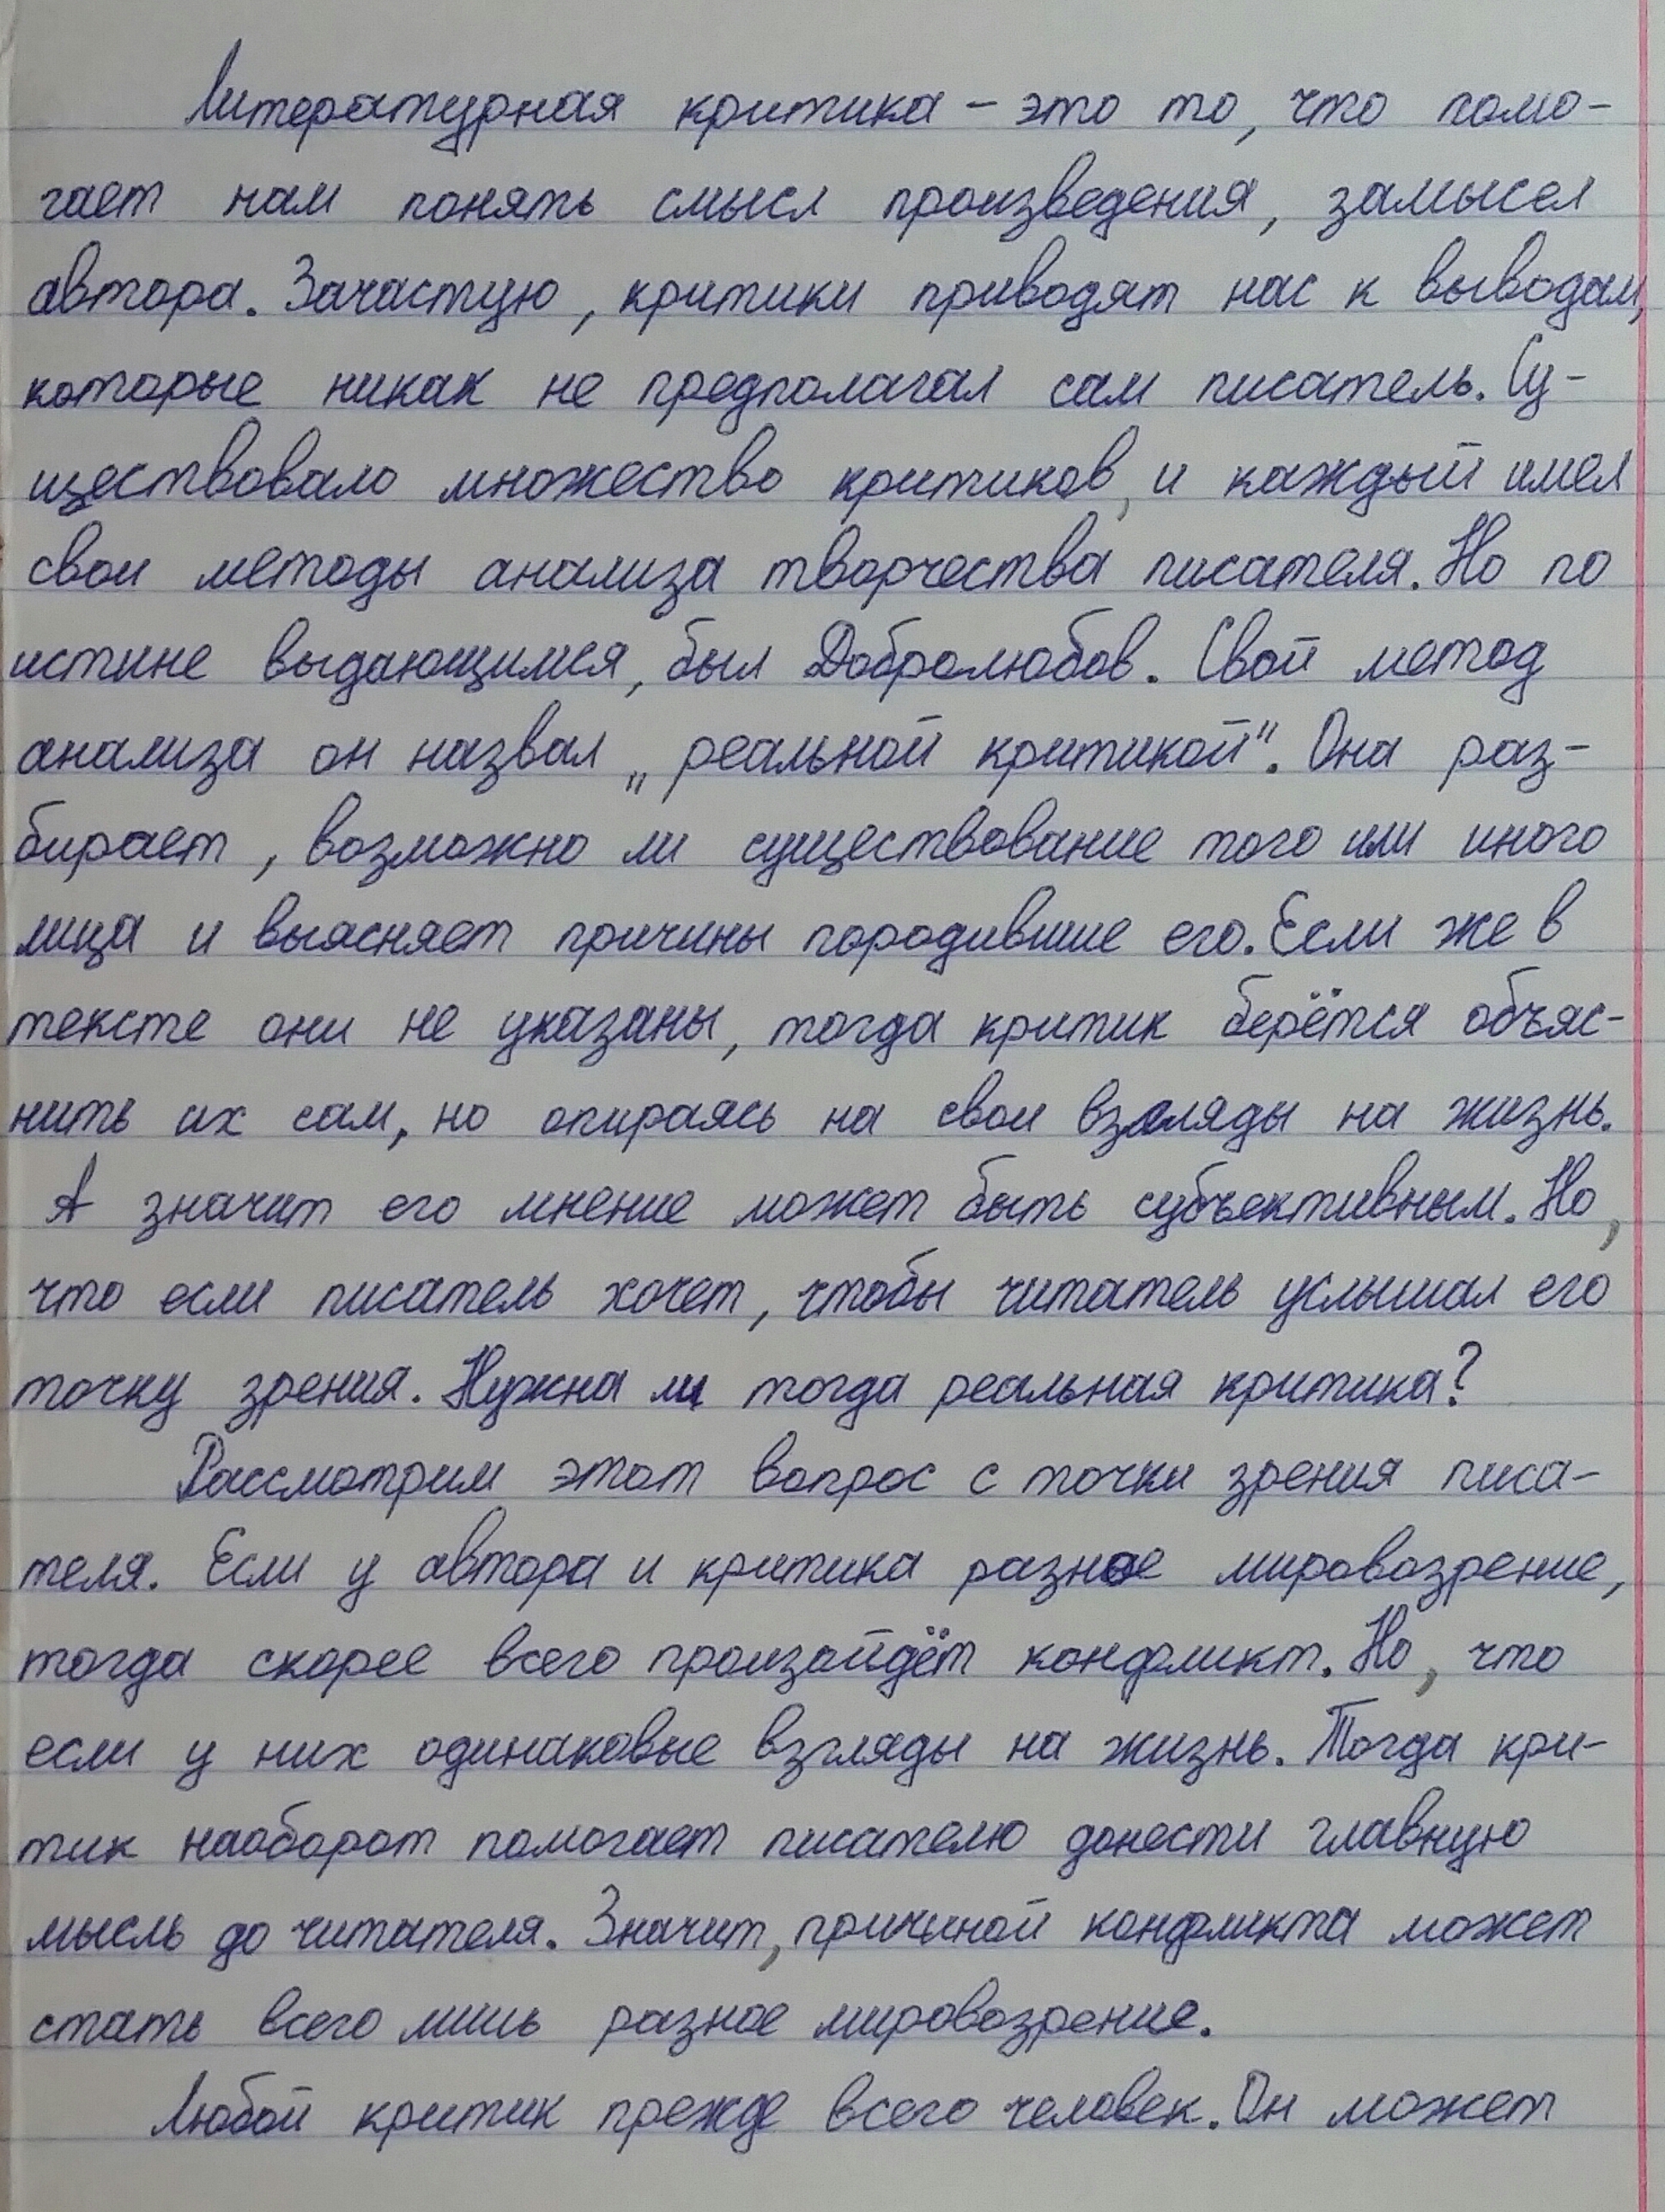 Литературная критика – это то, что помо-
гает нам понять смысл произведения, замысел
автора. Зачастую, критики приводят нас к выводам,
которые никак не предполагал сам писатель. Су-
ществовало множество критиков, и каждый имел
свои методы анализа творчества писателя. Но по
истине выдающимся, был Добролюбов. Свой метод
анализа он назвал „реальной критикой". Она раз-
бирает, возможно ли существование того или иного
лица и выясняет причины породившие его. Если же в
тексте они не указаны, тогда критик берётся объяс-
нить их сам, но опираясь на свои взгляды на жизнь.
А значит его мнение может быть субъективным. Но,
что если писатель хочет, чтобы читатель услышал его
точку зрения. Нужна ли тогда реальная критика?
Рассмотрим этот вопрос с точки зрения писа-
теля. Если у автора и критика разное мировозрение,
тогда скорее всего произайдёт конфликт. Но, что
если у них одинаковые взгляды на жизнь. Тогда кри-
тик наоборот помогает писателю донести главную
мысль до читателя. Значит, причиной конфликта может
стать всего лишь разное мировозрение.
Любой критик прежде всего человек. Он может